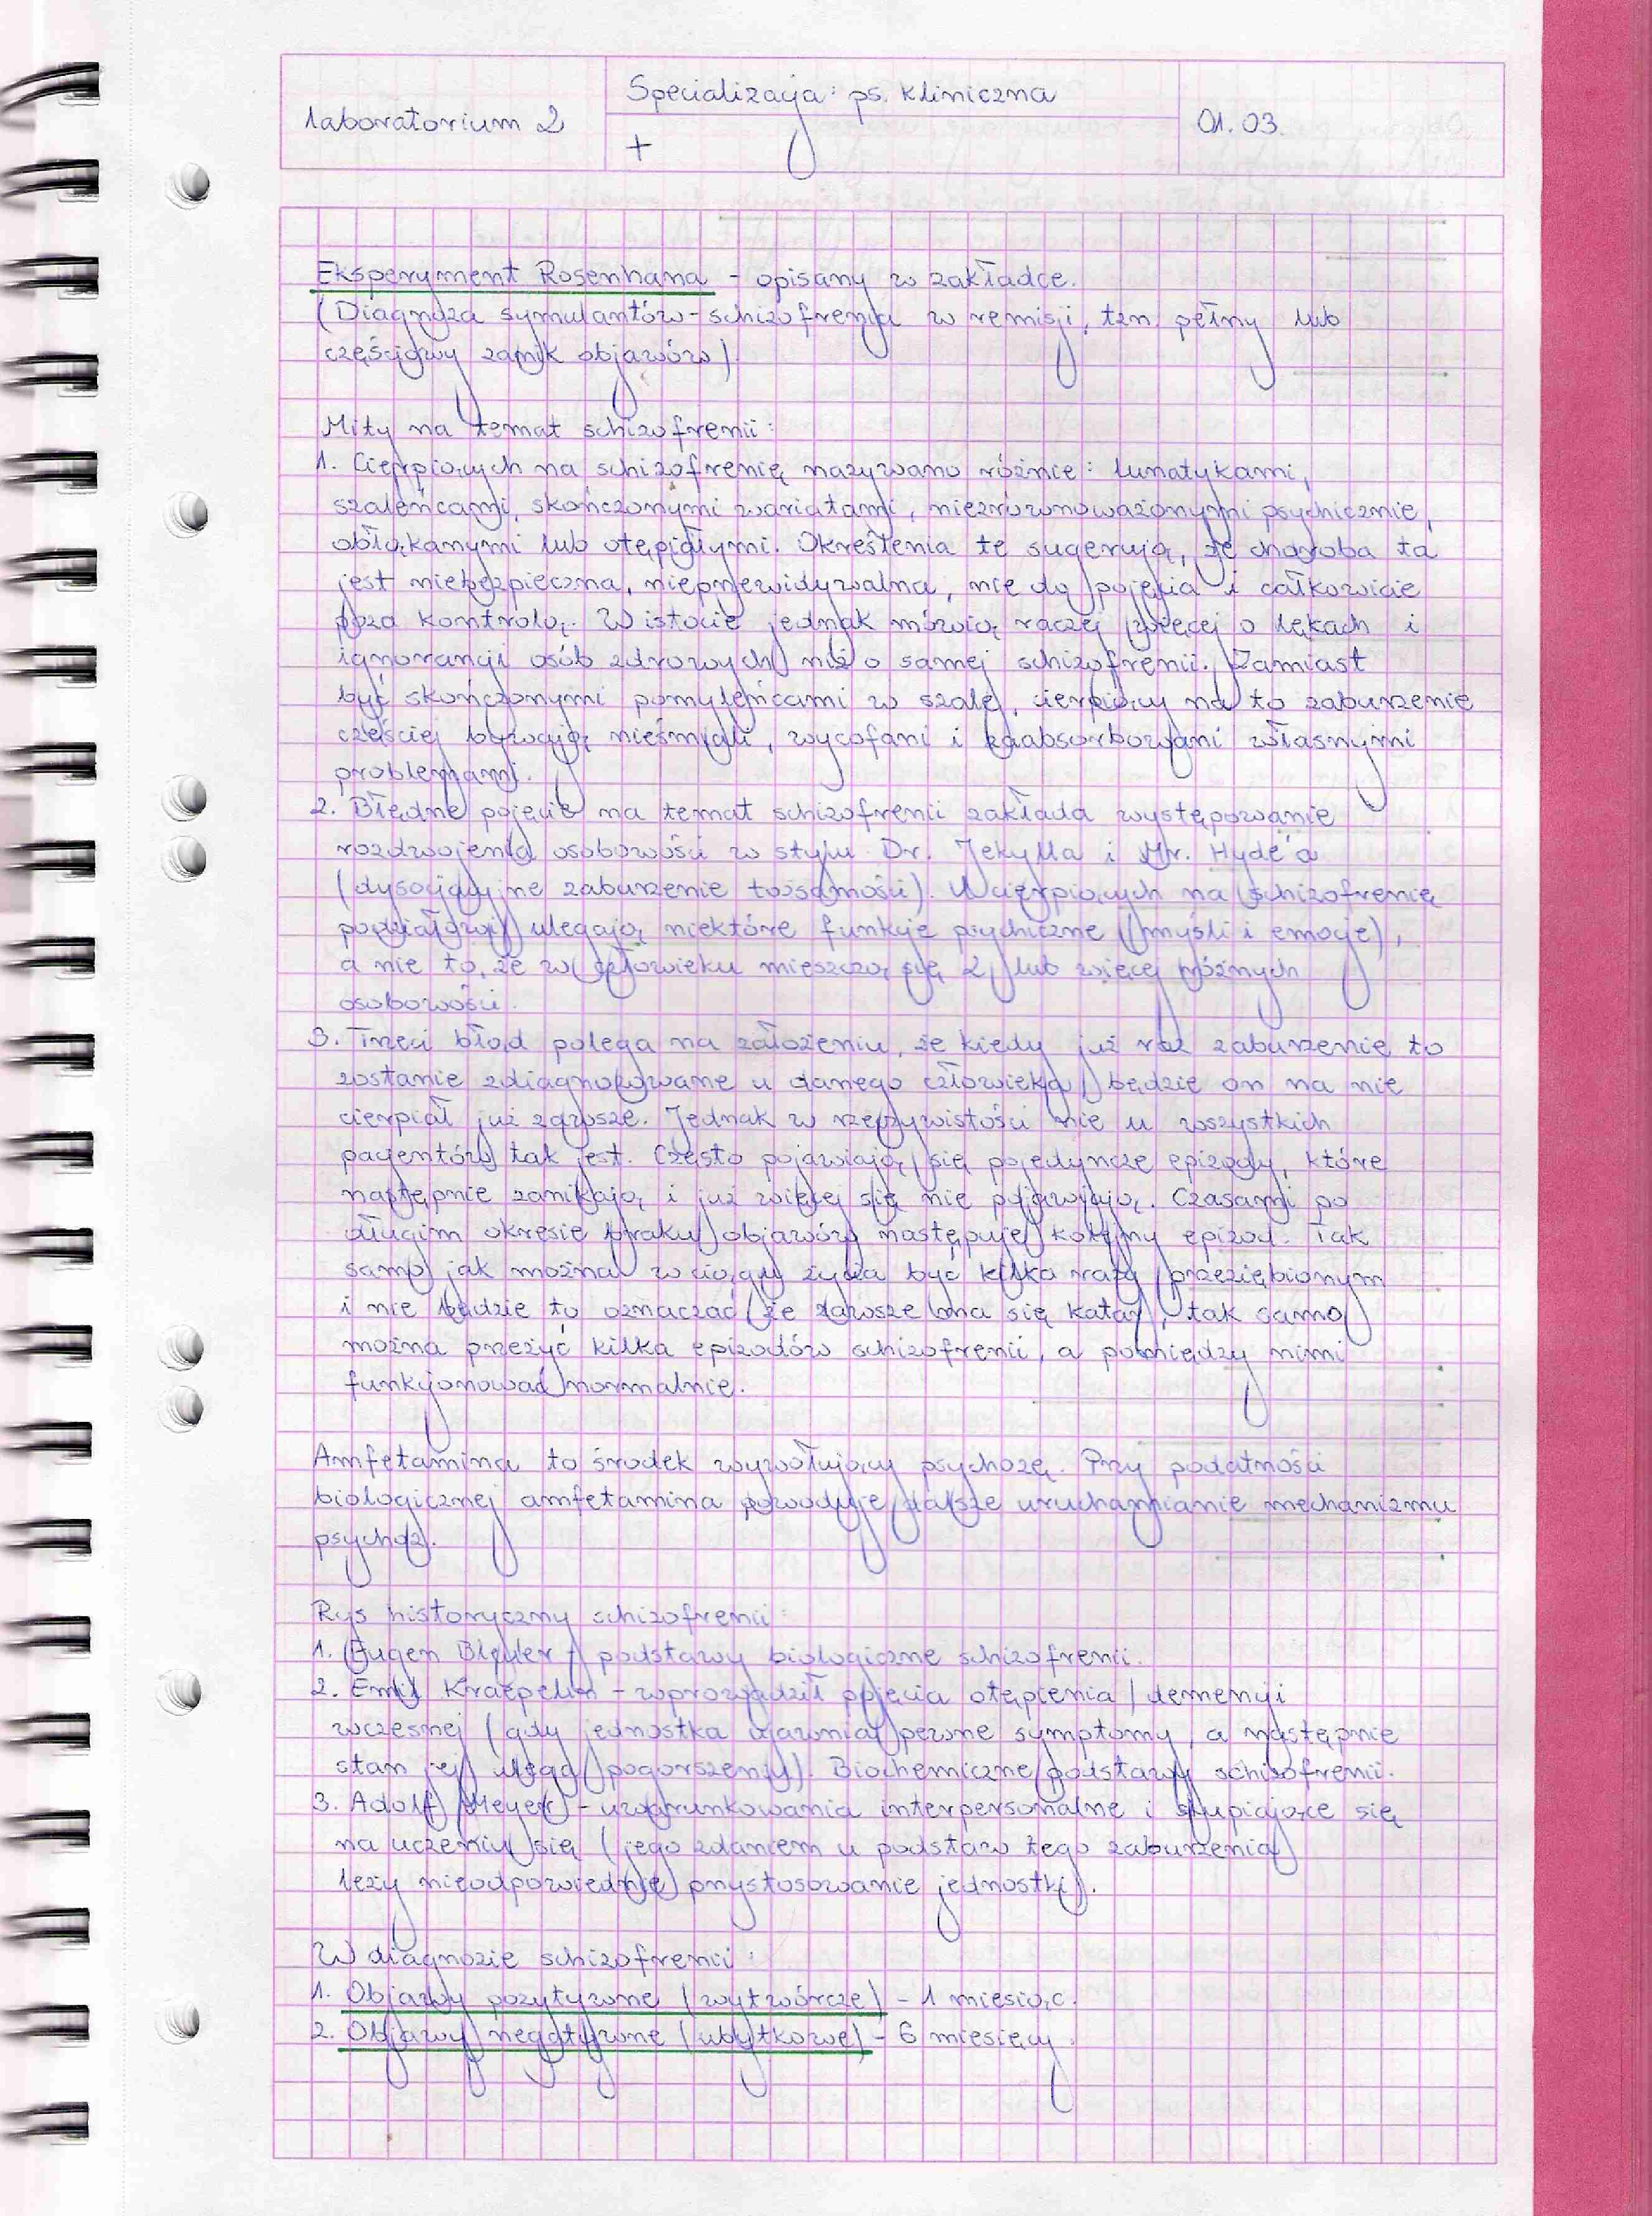 laboratorium 2
Specializacja: ps. kliniczna
+
01.03.
Eksperyment Rosenhana - opisany w zakładce.
(Diagnoza symulantów - schizofrenia w remisji, tzn. pełny lub
częściowy zanik objawów)
Mity na temat schizofrenii:
1. Cierpiących na schizofrenię nazywano różnie: lunatykami,
szaleńcami, skończonymi wariatami, niezrównoważonymi psychicznie,
obłąkanymi lub otępiałymi. Określenia te sugerują, że choroba ta
jest niebezpieczna, nieprzewidywalna, nie do pojęcia i całkowicie
poza kontrolą. W istocie jednak mówią raczej więcej o lękach i
ignorancji osób zdrowych niż o samej schizofrenii. Zamiast
być skończonymi pomyleńcami w szale, cierpiący na to zaburzenie
częściej bywają nieśmiali, wycofani i zaabsorbowani własnymi
problemami.
2. Błędne pojęcie na temat schizofrenii zakłada występowanie
rozdwojenia osobowości w stylu Dr. Jekylla i Mr. Hyde'a
(dysocjacyjne zaburzenie tożsamości). U cierpiących na schizofrenię
podziałowi ulegają niektóre funkcje psychiczne (myśli i emocje),
a nie to, że w człowieku mieszczą się 2 lub więcej różnych
osobowości.
3. Trzeci błąd polega na założeniu, że kiedy już raz zaburzenie to
zostanie zdiagnozowane u danego człowieka, będzie on na nie
cierpiał już zawsze. Jednak w rzeczywistości nie u wszystkich
pacjentów tak jest. Często pojawiają się pojedyncze epizody, które
następnie zanikają i już więcej się nie pojawiają. Czasami po
długim okresie braku objawów następuje kolejny epizod. Tak
samo jak można w ciągu życia być kilka razy przeziębionym
i nie będzie to oznaczać, że zawsze ma się katar, tak samo
można przeżyć kilka epizodów schizofrenii, a pomiędzy nimi
funkcjonować normalnie.
Amfetamina to środek wywołujący psychozę. Przy podatności
biologicznej amfetamina powoduje dalsze uruchamianie mechanizmu
psychoz.
Rys historyczny schizofrenii:
1. Eugen Bleuler - podstawy biologiczne schizofrenii.
2. Emil Kraepelin - wprowadził pojęcia otępienia / demencji
wczesnej (gdy jednostka ujawniała pewne symptomy, a następnie
stan jej ulegał pogorszeniu). Biochemiczne podstawy schizofrenii.
3. Adolf Meyer - uwarunkowania interpersonalne i skupiające się
na uczeniu się (jego zdaniem u podstaw tego zaburzenia
leży nieodpowiednie przystosowanie jednostki).
W diagnozie schizofrenii:
1. Objawy pozytywne (wytwórcze) - 1 miesiąc.
2. Objawy negatywne (ubytkowe) - 6 miesięcy.